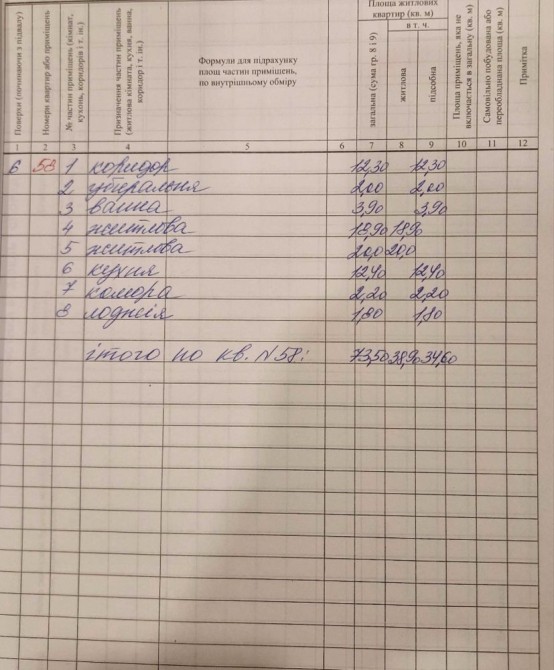 Поверхи (починаючи з підвалу)
Номери квартир або приміщень
№ частин приміщень (кімнат, кухонь, коридорів і т. ін.)
Призначення частин приміщень (житлова кімната, кухня, ванна, коридор і т. ін.)
Формули для підрахунку площ частин приміщень, по внутрішньому обміру
Площа житлових квартир (кв. м)
загальна (сума гр. 8 і 9)
в т. ч.
житлова
підсобна
Площа приміщень, яка не включається в загальну (кв. м)
Самовільно побудована або переобладнана площа (кв. м)
Примітка
1 2 3 4 5 6 7 8 9 10 11 12
6 58 1 коридор 12,30 12,30
2 убіральня 2,00 2,00
3 ванна 3,90 3,90
4 житлова 18,90 18,90
5 житлова 20,0 20,0
6 кухня 12,40 12,40
7 комора 2,20 2,20
8 лоджія 1,80 1,80
ітого по кв. N 58: 73,50 38,90 34,60